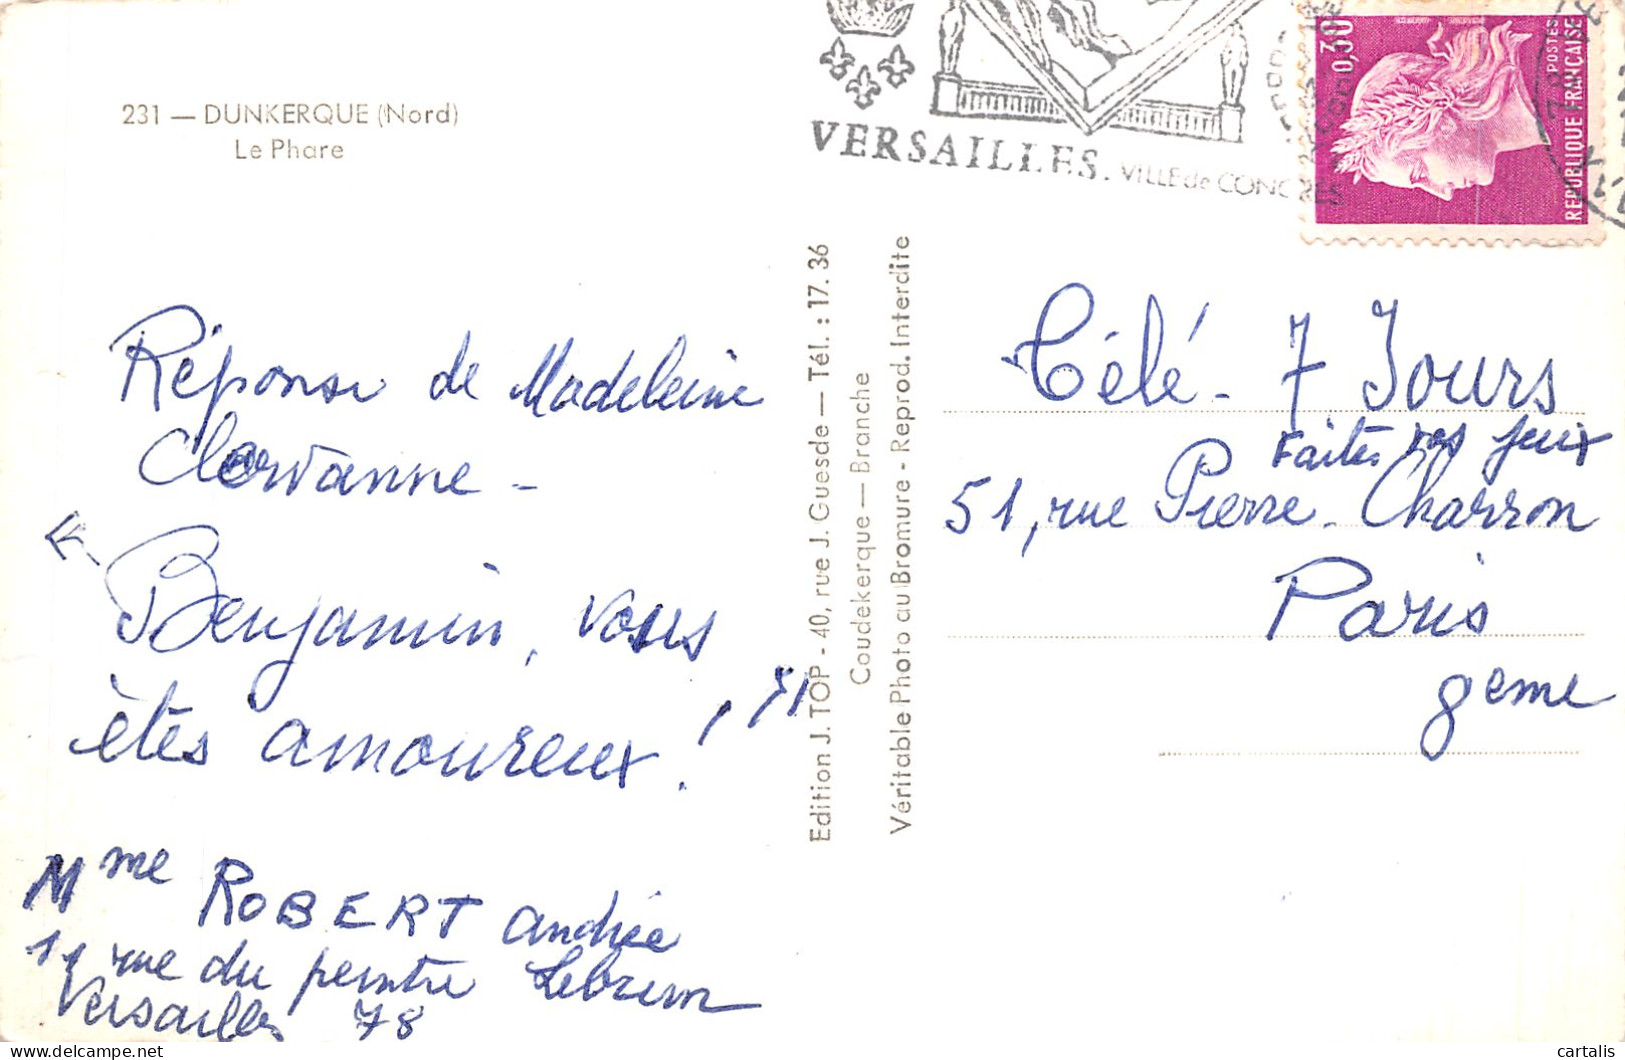 231 — DUNKERQUE (Nord)
Le Phare
VERSAILLES. VILLE de CONGRES
0,30
POSTES
REPUBLIQUE FRANÇAISE
Réponse de Madeleine
Clervanne -
Benjamin, vous
êtes amoureux !
Mme ROBERT Andrée
11 rue du peintre Lebrun
Versailles 78
Edition J. TOP - 40, rue J. Guesde — Tél. : 17.36
Coudekerque — Branche
Véritable Photo au Bromure - Reprod. Interdite
Télé - 7 Jours
Faites vos jeux
51, rue Pierre - Charron
Paris
8eme
cartalis